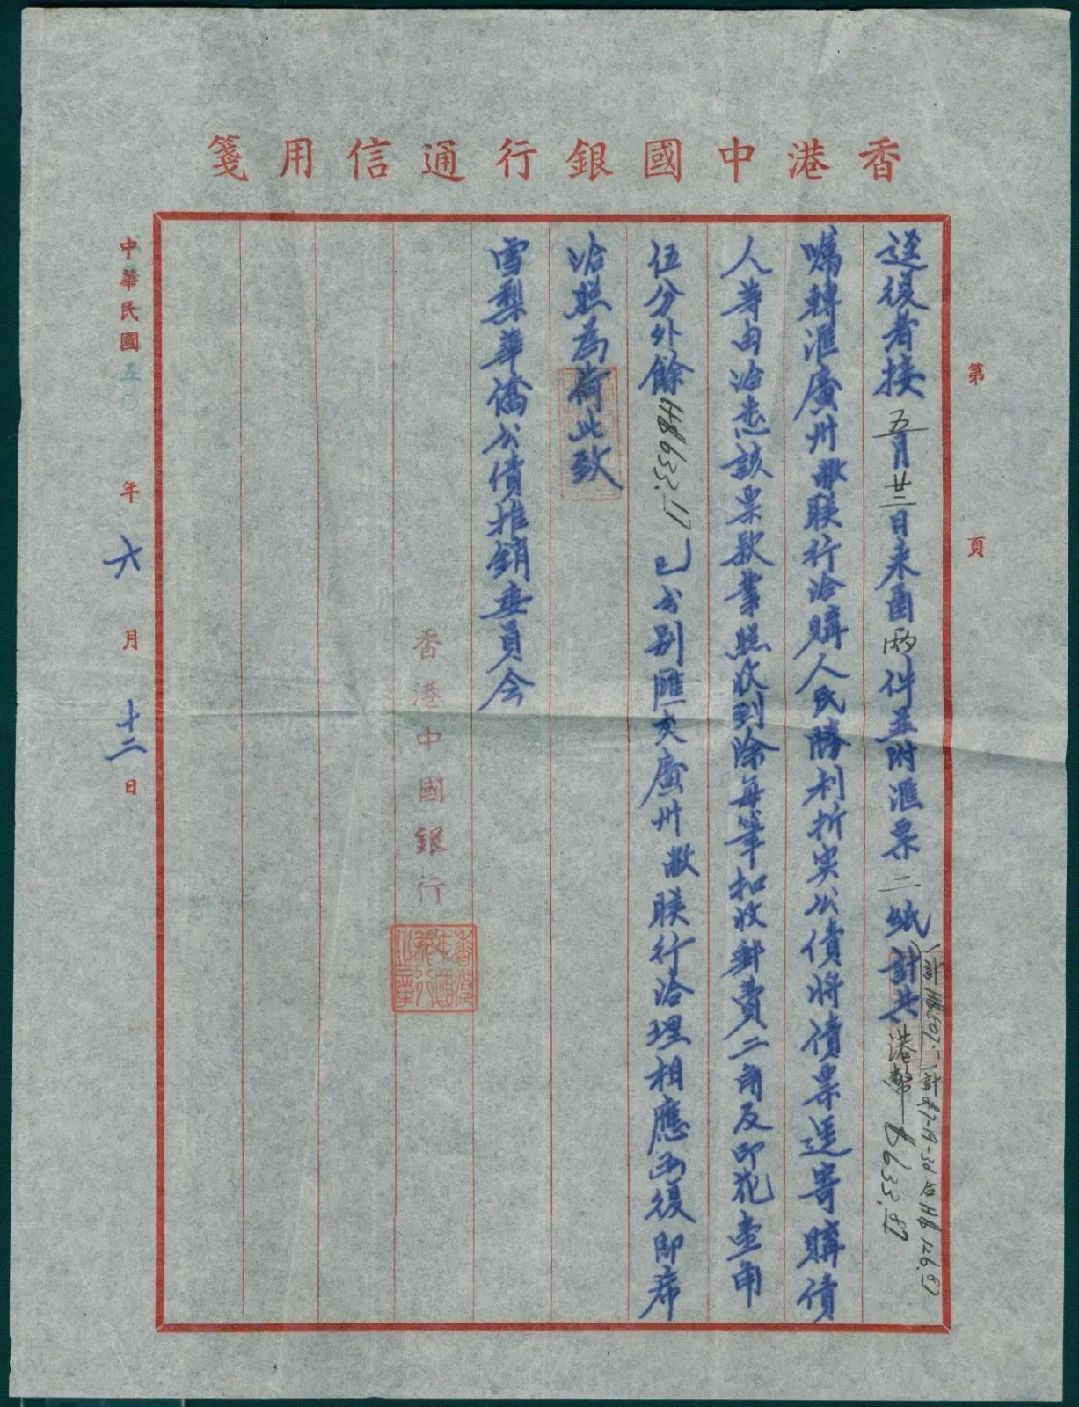 香港中國銀行通信用箋
第 頁
逕復者接五月廿三日來函兩件並附滙票二紙計共港幣$633.87
囑轉滙廣州敝联行洽購人民勝利折实公債将債票逕寄購債
人等由洽悉該票款業照收到除每筆扣收郵費二角及印花壹角
伍分外餘HK$633.17已分别匯交廣州敝联行洽理相應函復即希
洽照為荷此致
雪梨華僑公債推銷委員会
香港中國銀行
中華民國五〇年六月十二日